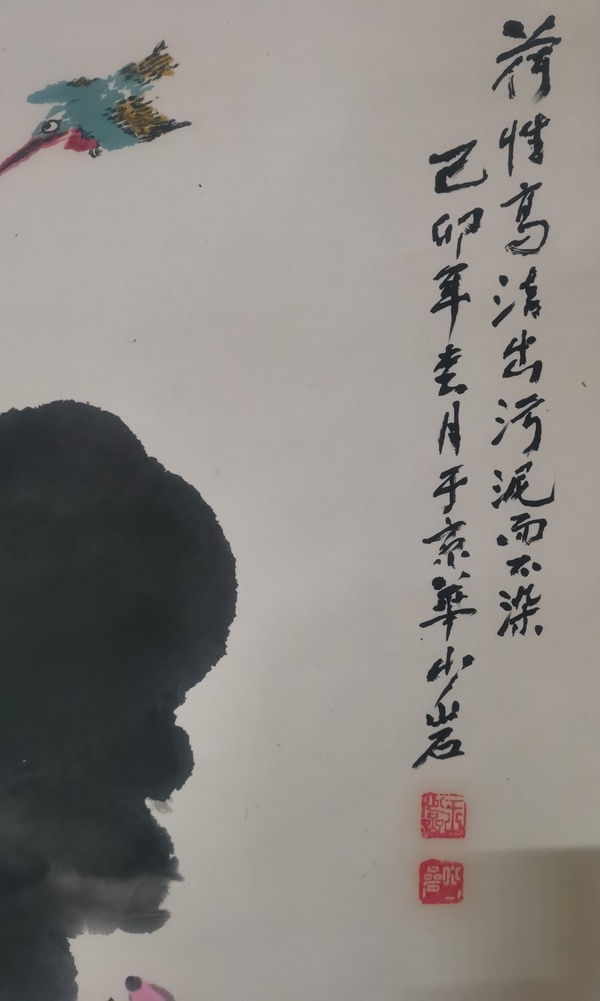 荷性高清出污泥而不染
己卯年春月于京華少岩